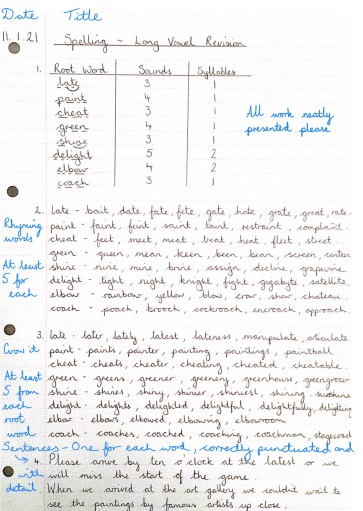 Date Title
11.1.21 Spelling - Long Vowel Revision
1. Root Word Sounds Syllables
late 3 1
paint 4 1
cheat 3 1
green 4 1
shine 3 1
delight 5 2
elbow 4 2
coach 3 1
All work neatly
presented please
2. late - bait, date, fate, fete, gate, hate, grate, great, rate.
Rhyming words
paint - faint, feint, saint, taint, restraint, complaint.
cheat - feet, meet, meat, beat, heat, fleet, street.
green - queen, mean, keen, been, bean, screen,
At least 5 for each
shine - nine, mine, brine, assign, decline, grapevine
delight - light, night, knight, fight, gigabyte, satellite,
elbow - rainbow, yellow, blow, crow, show, chateau.
coach - poach, brooch, cockroach, encroach, approach.
3. late - later, lately, latest, lateness, manipulate, articulate
Grow it
paint - paints, painter, painting, paintings, paintball
cheat - cheats, cheater, cheating, cheated, cheatable.
At least 5 from each root word
green - greens, greener, greenery, greenhouse, greengrocer
shine - shines, shiny, shinier, shiniest, shining, sunshine
delight - delights, delighted, delightful, delightfully, delighting
elbow - elbows, elbowed, elbowing, elbowroom
coach - coaches, coached, coaching, coachman, stagecoach
Sentences - One for each word, correctly punctuated and
with detail
4. Please arrive by ten o'clock at the latest or we
will miss the start of the game.
When we arrived at the art gallery we couldn't wait to
see the paintings by famous artists up close.